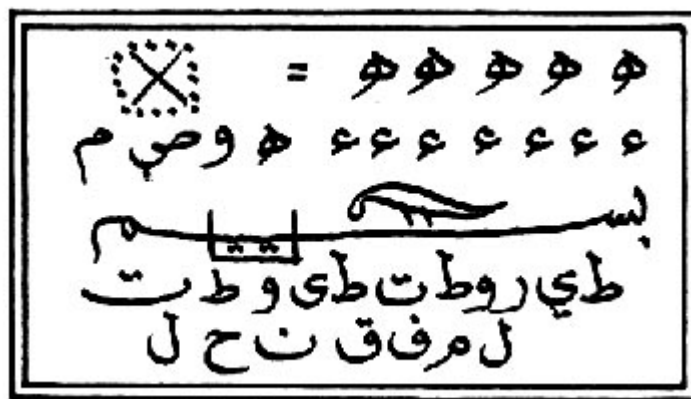 ه ه ه ه ه =
ء ء ء ء ء ء ء ه و ص ي م
بسم
ط ي ر و ط ت ط ى و ط ت
ل م ر ف ق ن ح ل